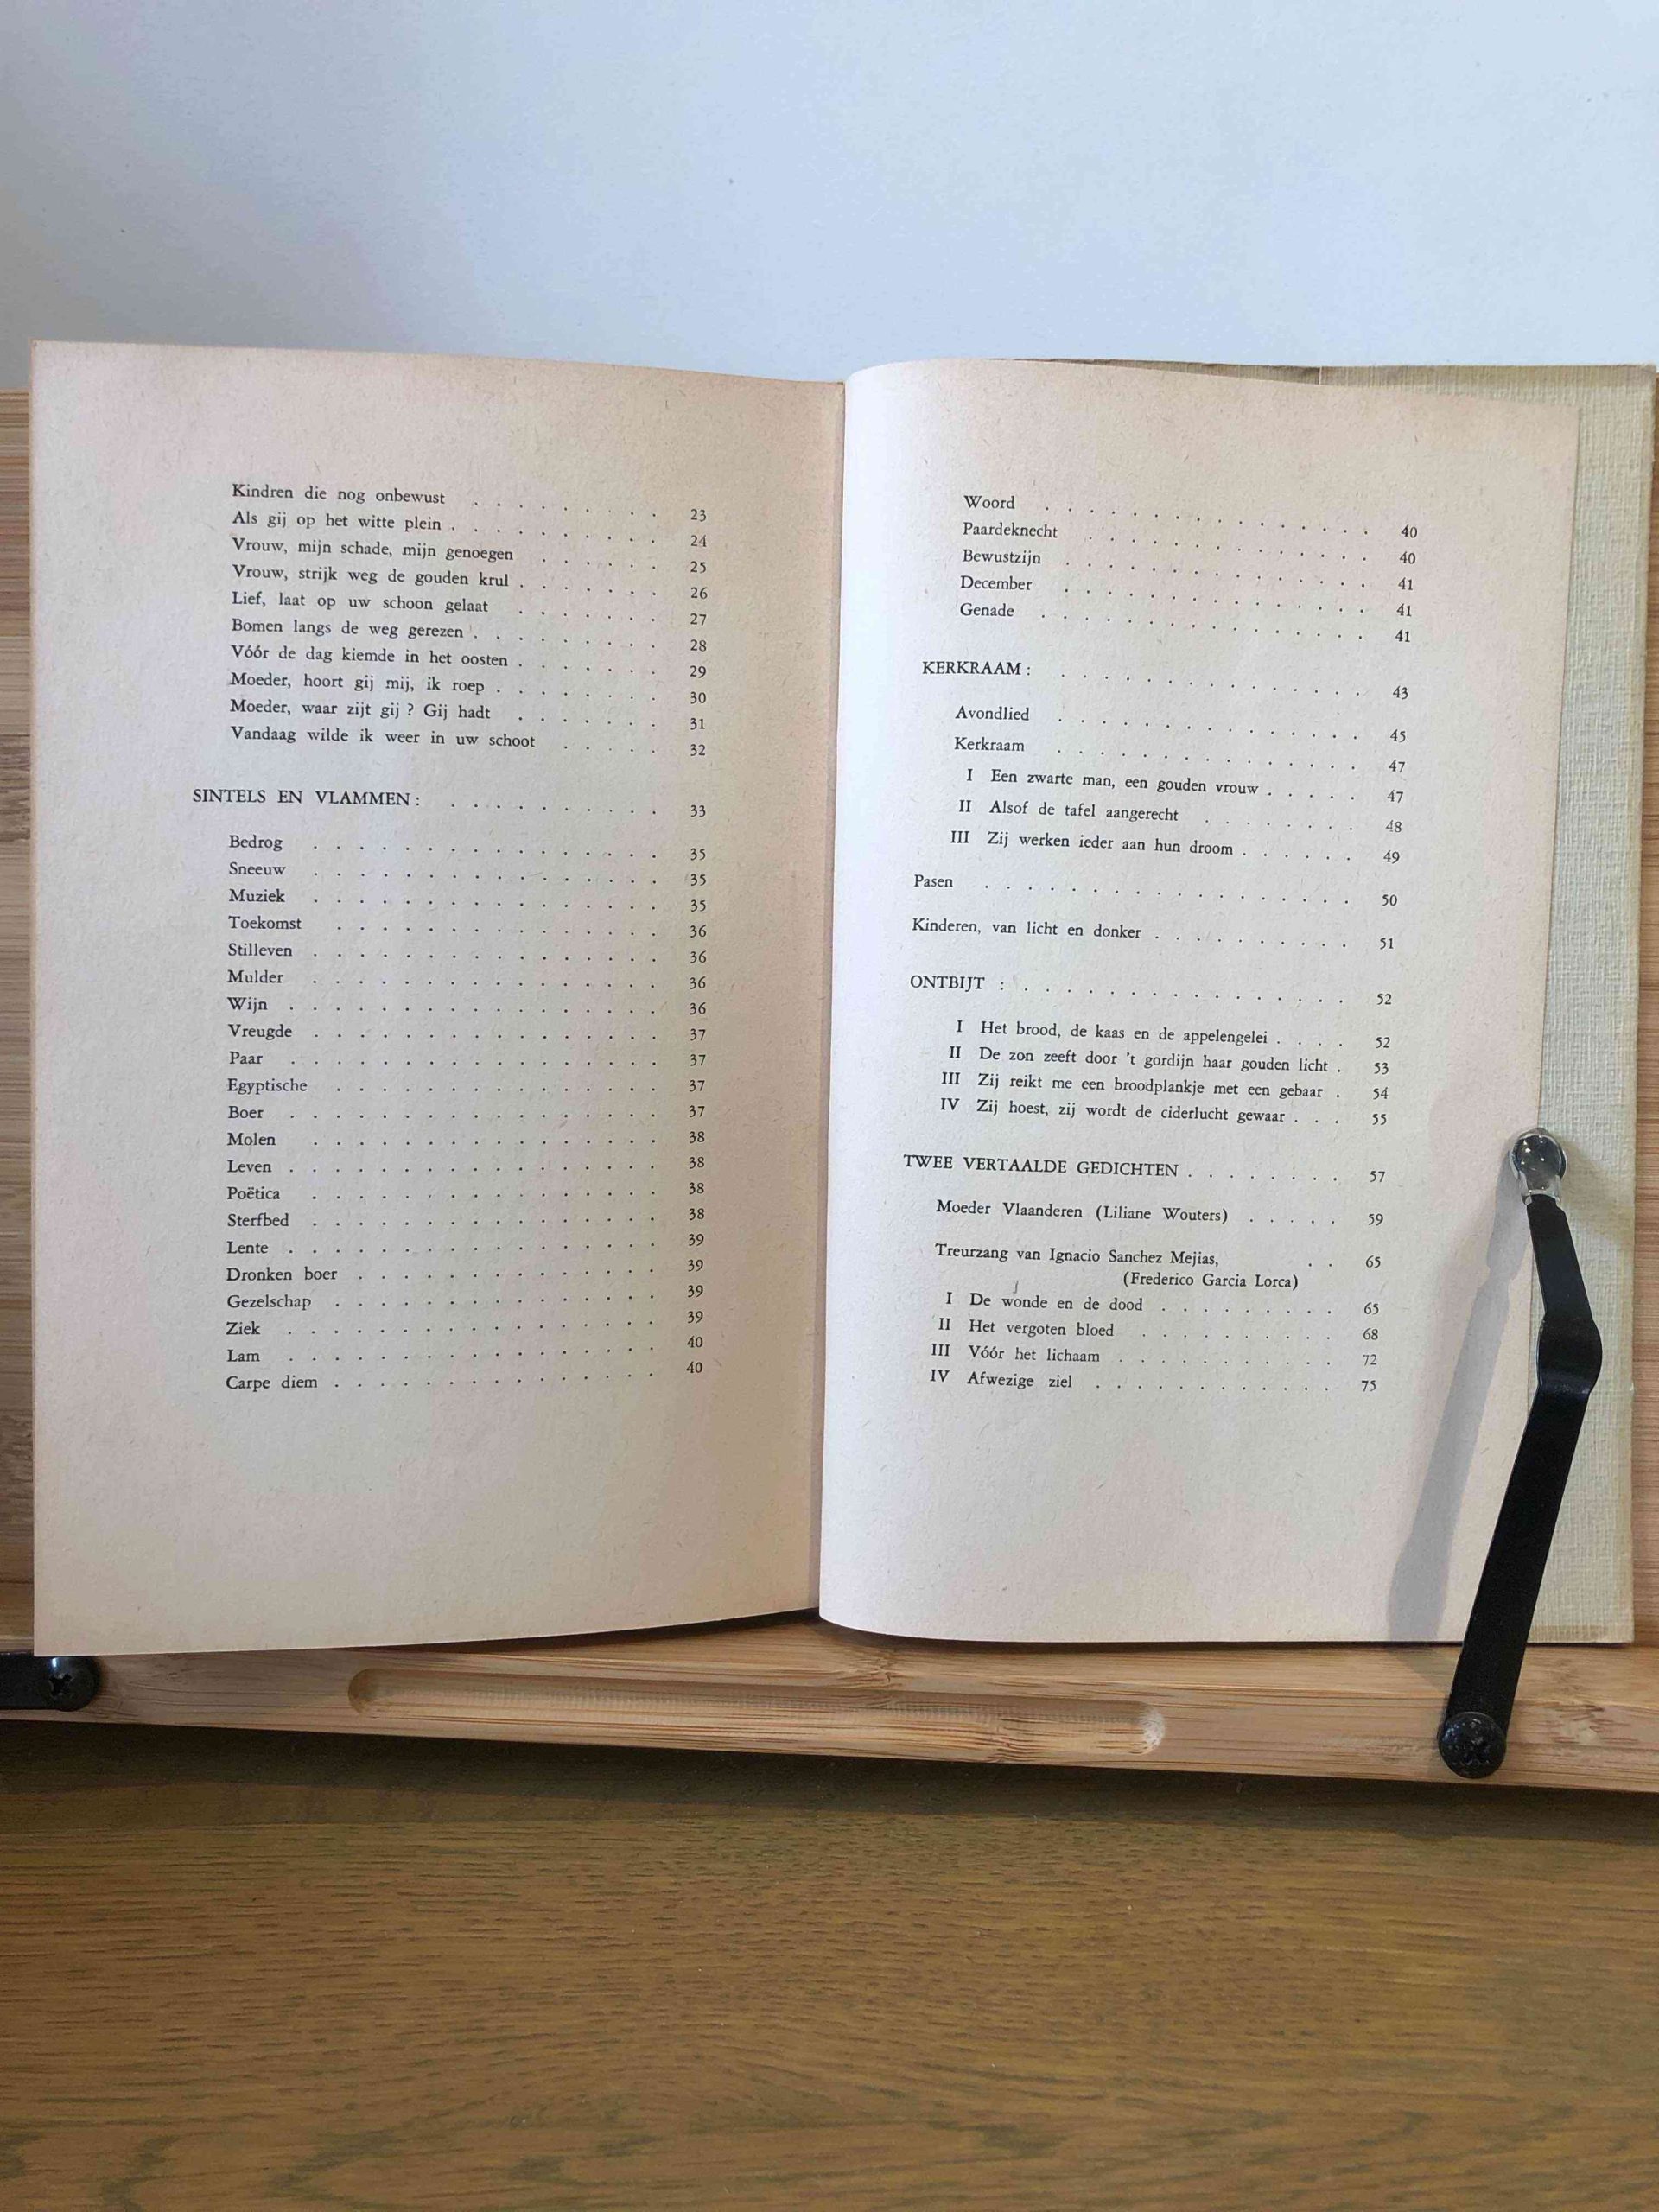 Kindren die nog onbewust . . . . . . . . . 23
Als gij op het witte plein . . . . . . . . . . 24
Vrouw, mijn schade, mijn genoegen . . . . . . 25
Vrouw, strijk weg de gouden krul . . . . . . . 26
Lief, laat op uw schoon gelaat . . . . . . . 27
Bomen langs de weg gerezen . . . . . . . . . 28
Vóór de dag kiemde in het oosten . . . . . . . 29
Moeder, hoort gij mij, ik roep . . . . . . . . 30
Moeder, waar zijt gij ? Gij hadt . . . . . . . 31
Vandaag wilde ik weer in uw schoot . . . . . 32
SINTELS EN VLAMMEN : . . . . . . . . . . 33
Bedrog . . . . . . . . . . . . . . . . 35
Sneeuw . . . . . . . . . . . . . . . . 35
Muziek . . . . . . . . . . . . . . . . 35
Toekomst . . . . . . . . . . . . . . . 36
Stilleven . . . . . . . . . . . . . . . . 36
Mulder . . . . . . . . . . . . . . . . 36
Wijn . . . . . . . . . . . . . . . . . 36
Vreugde . . . . . . . . . . . . . . . . 37
Paar . . . . . . . . . . . . . . . . . 37
Egyptische . . . . . . . . . . . . . . . 37
Boer . . . . . . . . . . . . . . . . . 37
Molen . . . . . . . . . . . . . . . . 38
Leven . . . . . . . . . . . . . . . . . 38
Poëtica . . . . . . . . . . . . . . . . 38
Sterfbed . . . . . . . . . . . . . . . . 38
Lente . . . . . . . . . . . . . . . . . 39
Dronken boer . . . . . . . . . . . . . . 39
Gezelschap . . . . . . . . . . . . . . . 39
Ziek . . . . . . . . . . . . . . . . . 39
Lam . . . . . . . . . . . . . . . . . 40
Carpe diem . . . . . . . . . . . . . . . 40
Woord . . . . . . . . . . . . . . . 40
Paardeknecht . . . . . . . . . . . . . 40
Bewustzijn . . . . . . . . . . . . . . 41
December . . . . . . . . . . . . . . 41
Genade . . . . . . . . . . . . . . . 41
KERKRAAM : . . . . . . . . . . . . . . 43
Avondlied . . . . . . . . . . . . . . 45
Kerkraam . . . . . . . . . . . . . . 47
I Een zwarte man, een gouden vrouw . . . . . 47
II Alsof de tafel aangerecht . . . . . . . . 48
III Zij werken ieder aan hun droom . . . . . . 49
Pasen . . . . . . . . . . . . . . . . . 50
Kinderen, van licht en donker . . . . . . . . . . 51
ONTBIJT : . . . . . . . . . . . . . . . . 52
I Het brood, de kaas en de appelengelei . . . . 52
II De zon zeeft door 't gordijn haar gouden licht . 53
III Zij reikt me een broodplankje met een gebaar . 54
IV Zij hoest, zij wordt de ciderlucht gewaar . . . 55
TWEE VERTAALDE GEDICHTEN . . . . . . . . 57
Moeder Vlaanderen (Liliane Wouters) . . . . . 59
Treurzang van Ignacio Sanchez Mejias, . . 65
(Frederico Garcia Lorca)
I De wonde en de dood . . . . . . . . . 65
II Het vergoten bloed . . . . . . . . . . 68
III Vóór het lichaam . . . . . . . . . . . 72
IV Afwezige ziel . . . . . . . . . . . . 75